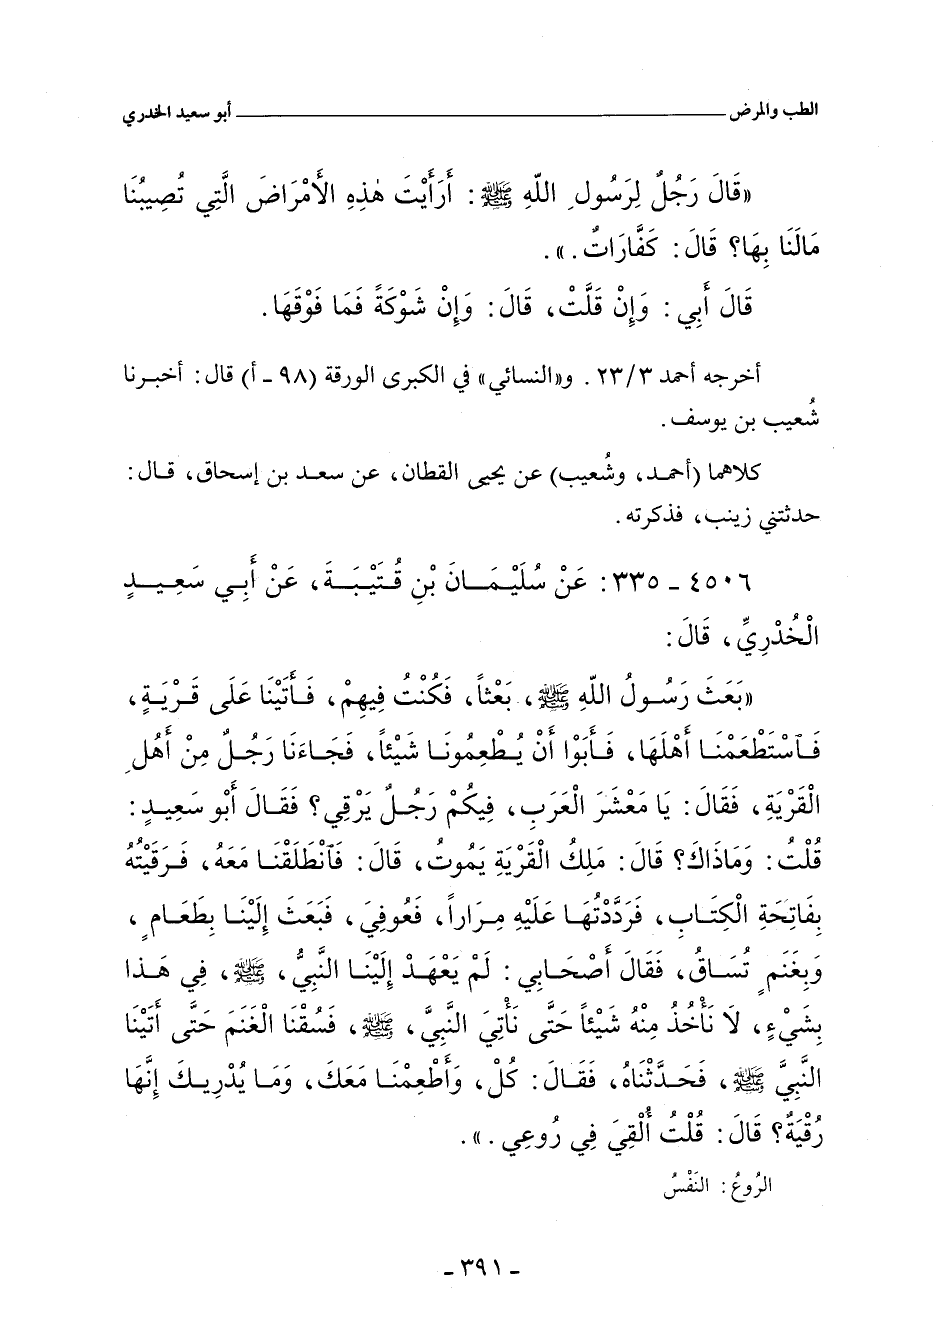 الطب والمرض ــــــــــــــــــــ أبو سعيد الخدري
«قَالَ رَجُلٌ لِرَسُولِ اللّهِ ﷺ: أَرَأَيْتَ هٰذِهِ الأَمْرَاضَ الَّتِي تُصِيبُنَا
مَالَنَا بِهَا؟ قَالَ: كَفَّارَاتٌ.».
قَالَ أَبِي: وَإِنْ قَلَّتْ، قَالَ: وَإِنْ شَوْكَةً فَمَا فَوْقَهَا.
أخرجه أحمد ٢٣/٣. و«النسائي» في الكبرى الورقة (٩٨ - أ) قال: أخبرنا
شُعيب بن يوسف.
كلاهما (أحمد، وشُعيب) عن يحيى القطان، عن سعد بن إسحاق، قال:
حدثتني زينب، فذكرته.
٤٥٠٦ - ٣٣٥: عَنْ سُلَيْمَانَ بْنِ قُتَيْبَةَ، عَنْ أَبِي سَعِيدٍ
الْخُدْرِيِّ، قَالَ:
«بَعَثَ رَسُولُ اللّهِ ﷺ، بَعْثاً، فَكُنْتُ فِيهِمْ، فَأَتَيْنَا عَلَى قَرْيَةٍ،
فَاسْتَطْعَمْنَا أَهْلَهَا، فَأَبَوْا أَنْ يُطْعِمُونَا شَيْئاً، فَجَاءَنَا رَجُلٌ مِنْ أَهْلِ
الْقَرْيَةِ، فَقَالَ: يَا مَعْشَرَ الْعَرَبِ، فِيكُمْ رَجُلٌ يَرْقِي؟ فَقَالَ أَبُو سَعِيدٍ:
قُلْتُ: وَمَاذَاكَ؟ قَالَ: مَلِكُ الْقَرْيَةِ يَمُوتُ، قَالَ: فَانْطَلَقْنَا مَعَهُ، فَرَقَيْتُهُ
بِفَاتِحَةِ الْكِتَابِ، فَرَدَّدْتُهَا عَلَيْهِ مِرَاراً، فَعُوفِيَ، فَبَعَثَ إِلَيْنَا بِطَعَامٍ،
وَبِغَنَمٍ تُسَاقُ، فَقَالَ أَصْحَابِي: لَمْ يَعْهَدْ إِلَيْنَا النَّبِيُّ، ﷺ، فِي هَذَا
بِشَيْءٍ، لَا نَأْخُذُ مِنْهُ شَيْئاً حَتَّى نَأْتِيَ النَّبِيَّ، ﷺ، فَسُقْنَا الْغَنَمَ حَتَّى أَتَيْنَا
النَّبِيَّ ﷺ، فَحَدَّثْنَاهُ، فَقَالَ: كُلْ، وَأَطْعِمْنَا مَعَكَ، وَمَا يُدْرِيكَ إِنَّهَا
رُقْيَةٌ؟ قَالَ: قُلْتُ أُلْقِيَ فِي رُوعِي.».
الرُوعُ: النَفْسُ
- ٣٩١ -